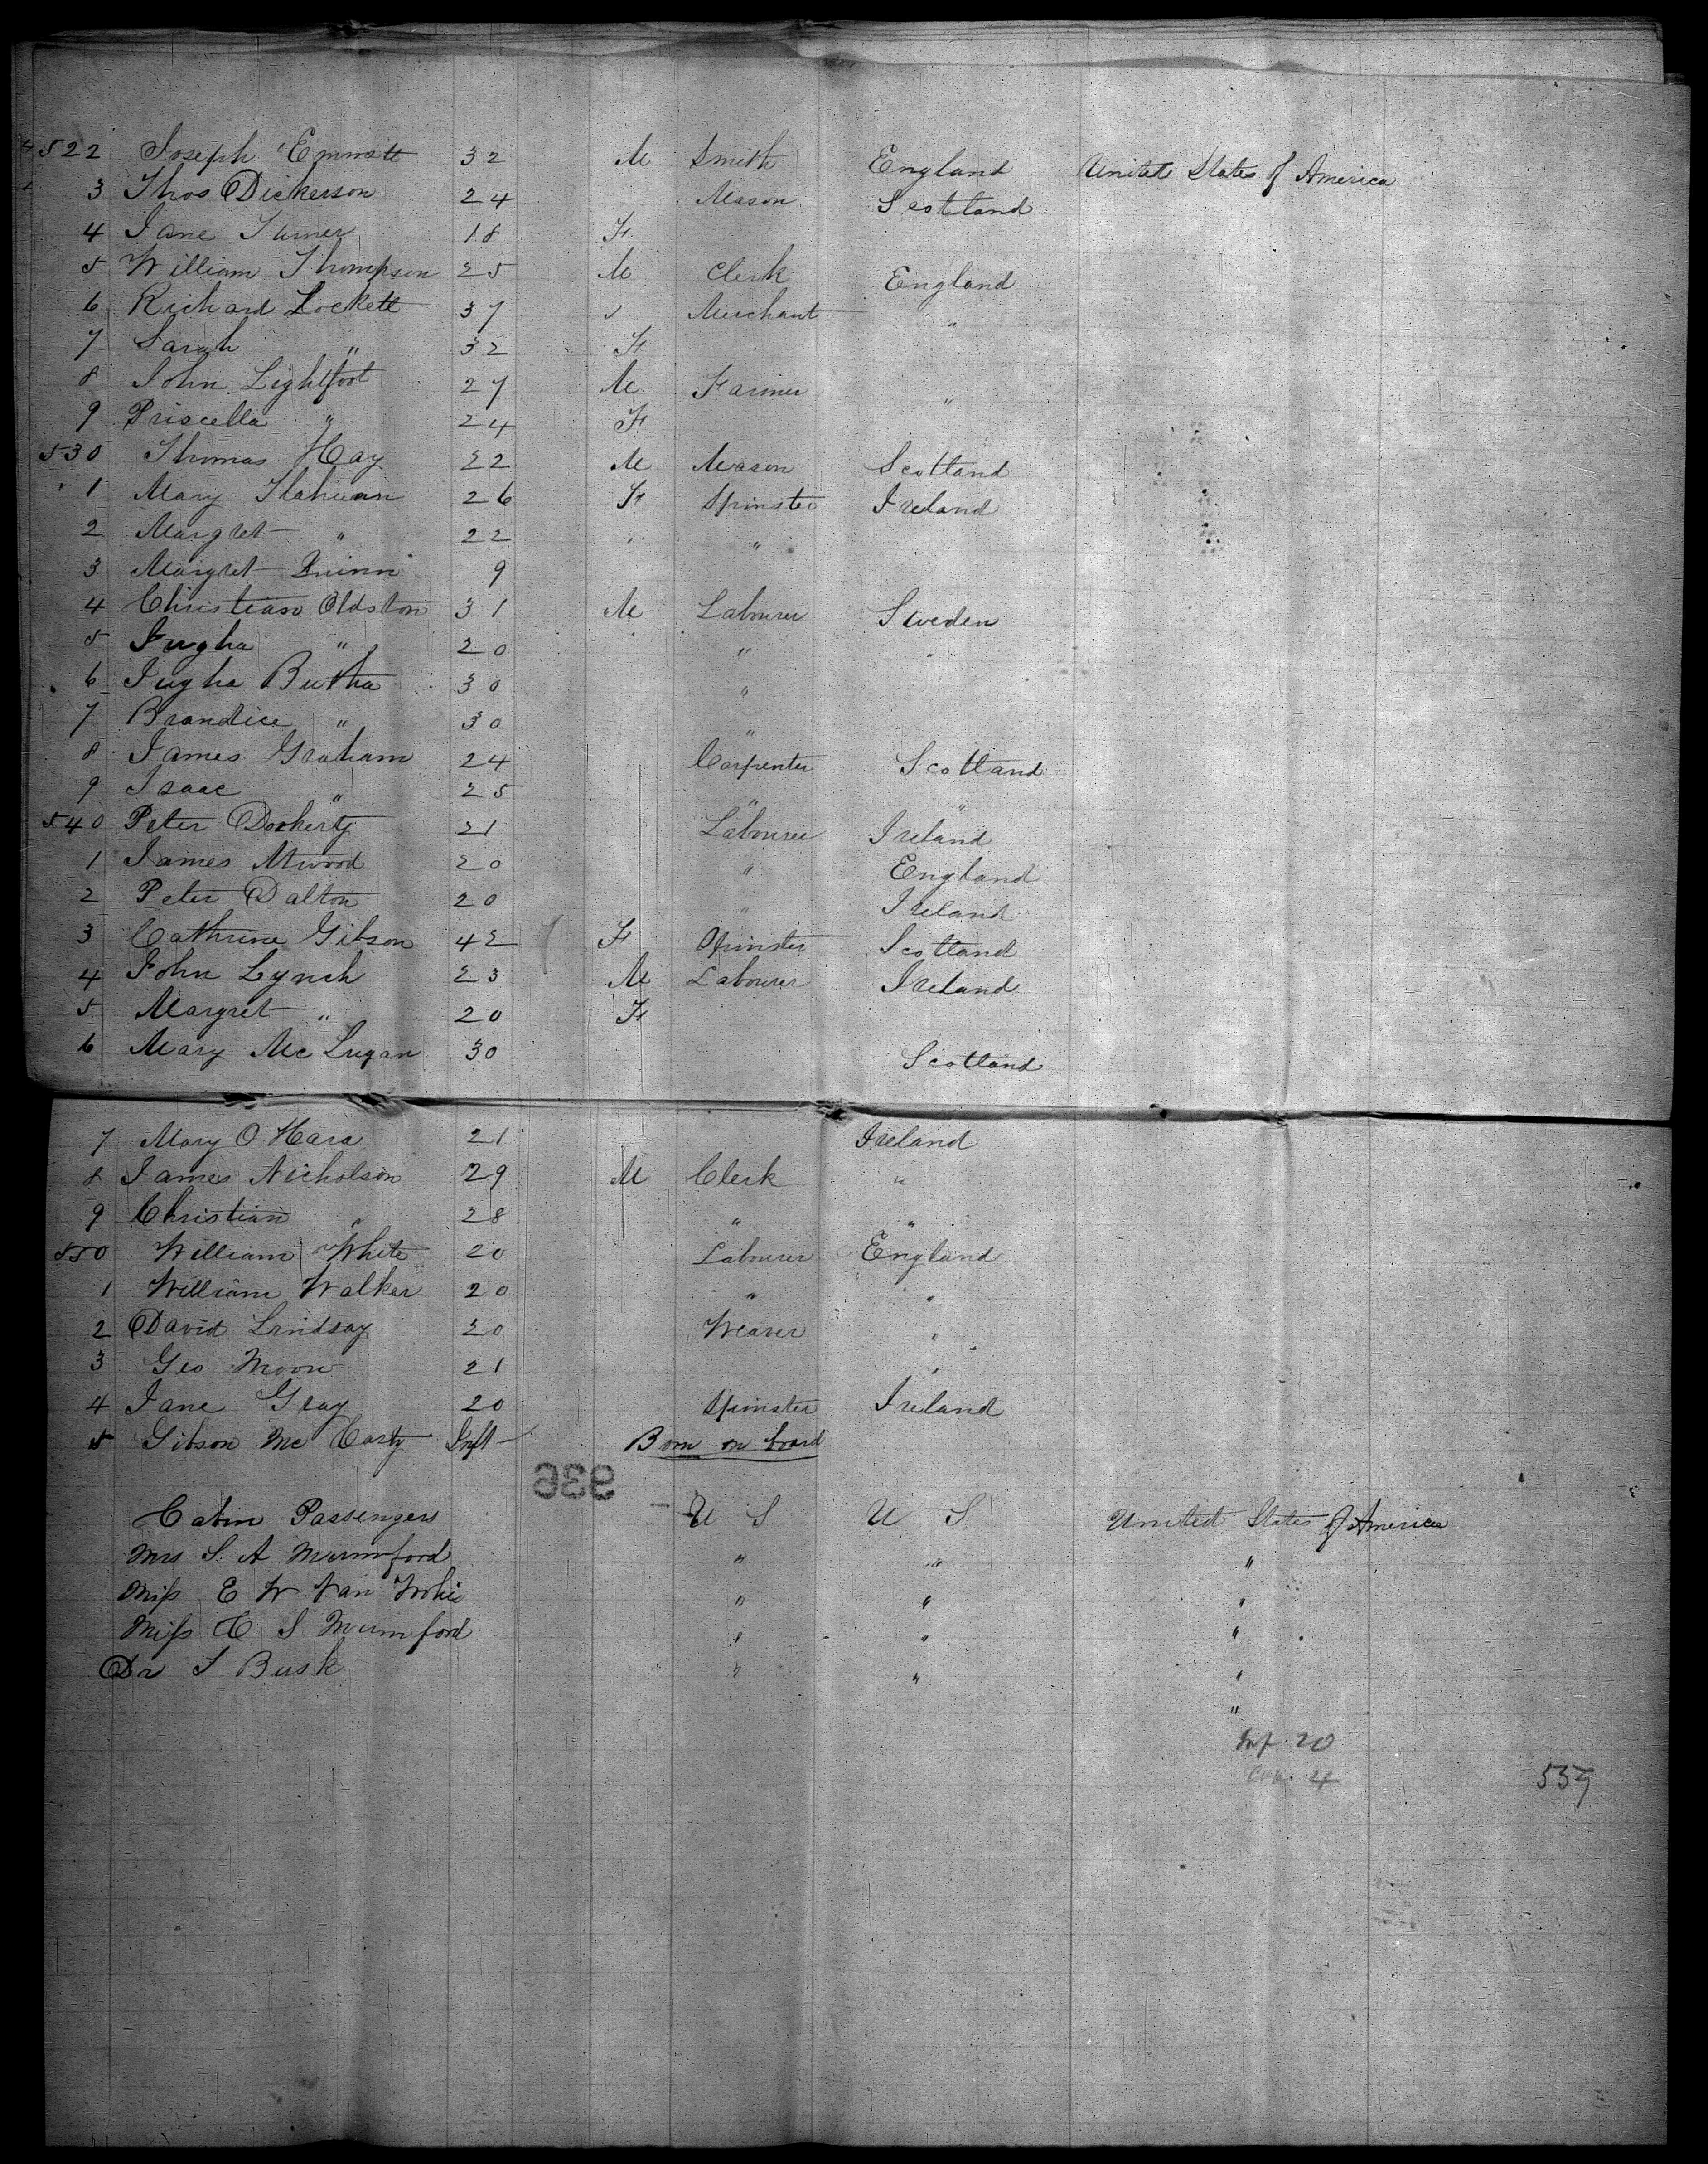 522 Joseph Emmott 32 M Smith England United States of America
3 Thos Dickerson 24 Mason Scotland
4 Jane Turner 18 F
5 William Thompson 25 M Clerk England
6 Richard Lockett 37 " Merchant "
7 Sarah " 32 F
8 John Lightfoot 27 M Farmer "
9 Priscella " 24 F
530 Thomas Hay 22 M Mason Scotland
1 Mary 26 F Spinster Ireland
2 Margret " 22 " "
3 Margret Quinn 9
4 Christian Oldston 31 M Labourer Sweden
5 " 20 " "
6 30 "
7 " 30 "
8 James Graham 24 Carpenter Scotland
9 Isaac " 25 " "
540 Peter Dockerty 21 Labourer Ireland
1 James Atwood 20 " England
2 Peter Dalton 20 " Ireland
3 Cathrine Gibson 42 F Spinster Scotland
4 John Lynch 23 M Labourer Ireland
5 Margret " 20 F
6 Mary Mc Lugan 30 Scotland
7 Mary O Hara 21 Ireland
8 James Nicholson 29 M Clerk "
9 Christian " 28 " "
550 William White 20 Labourer England
1 William Walker 20 " "
2 David Lindsay 20 Weaver "
3 Geo Moon 21 "
4 Jane Gray 20 Spinster Ireland
5 Gibson Mc Carty Inft Born on board
936
Cabin Passengers U S U S United States of America
Mrs S. A Mumford " " "
Miss E W Van " " "
Miss C S Mumford " " "
Dr T Busk " " "
"
Inf 20
4 559